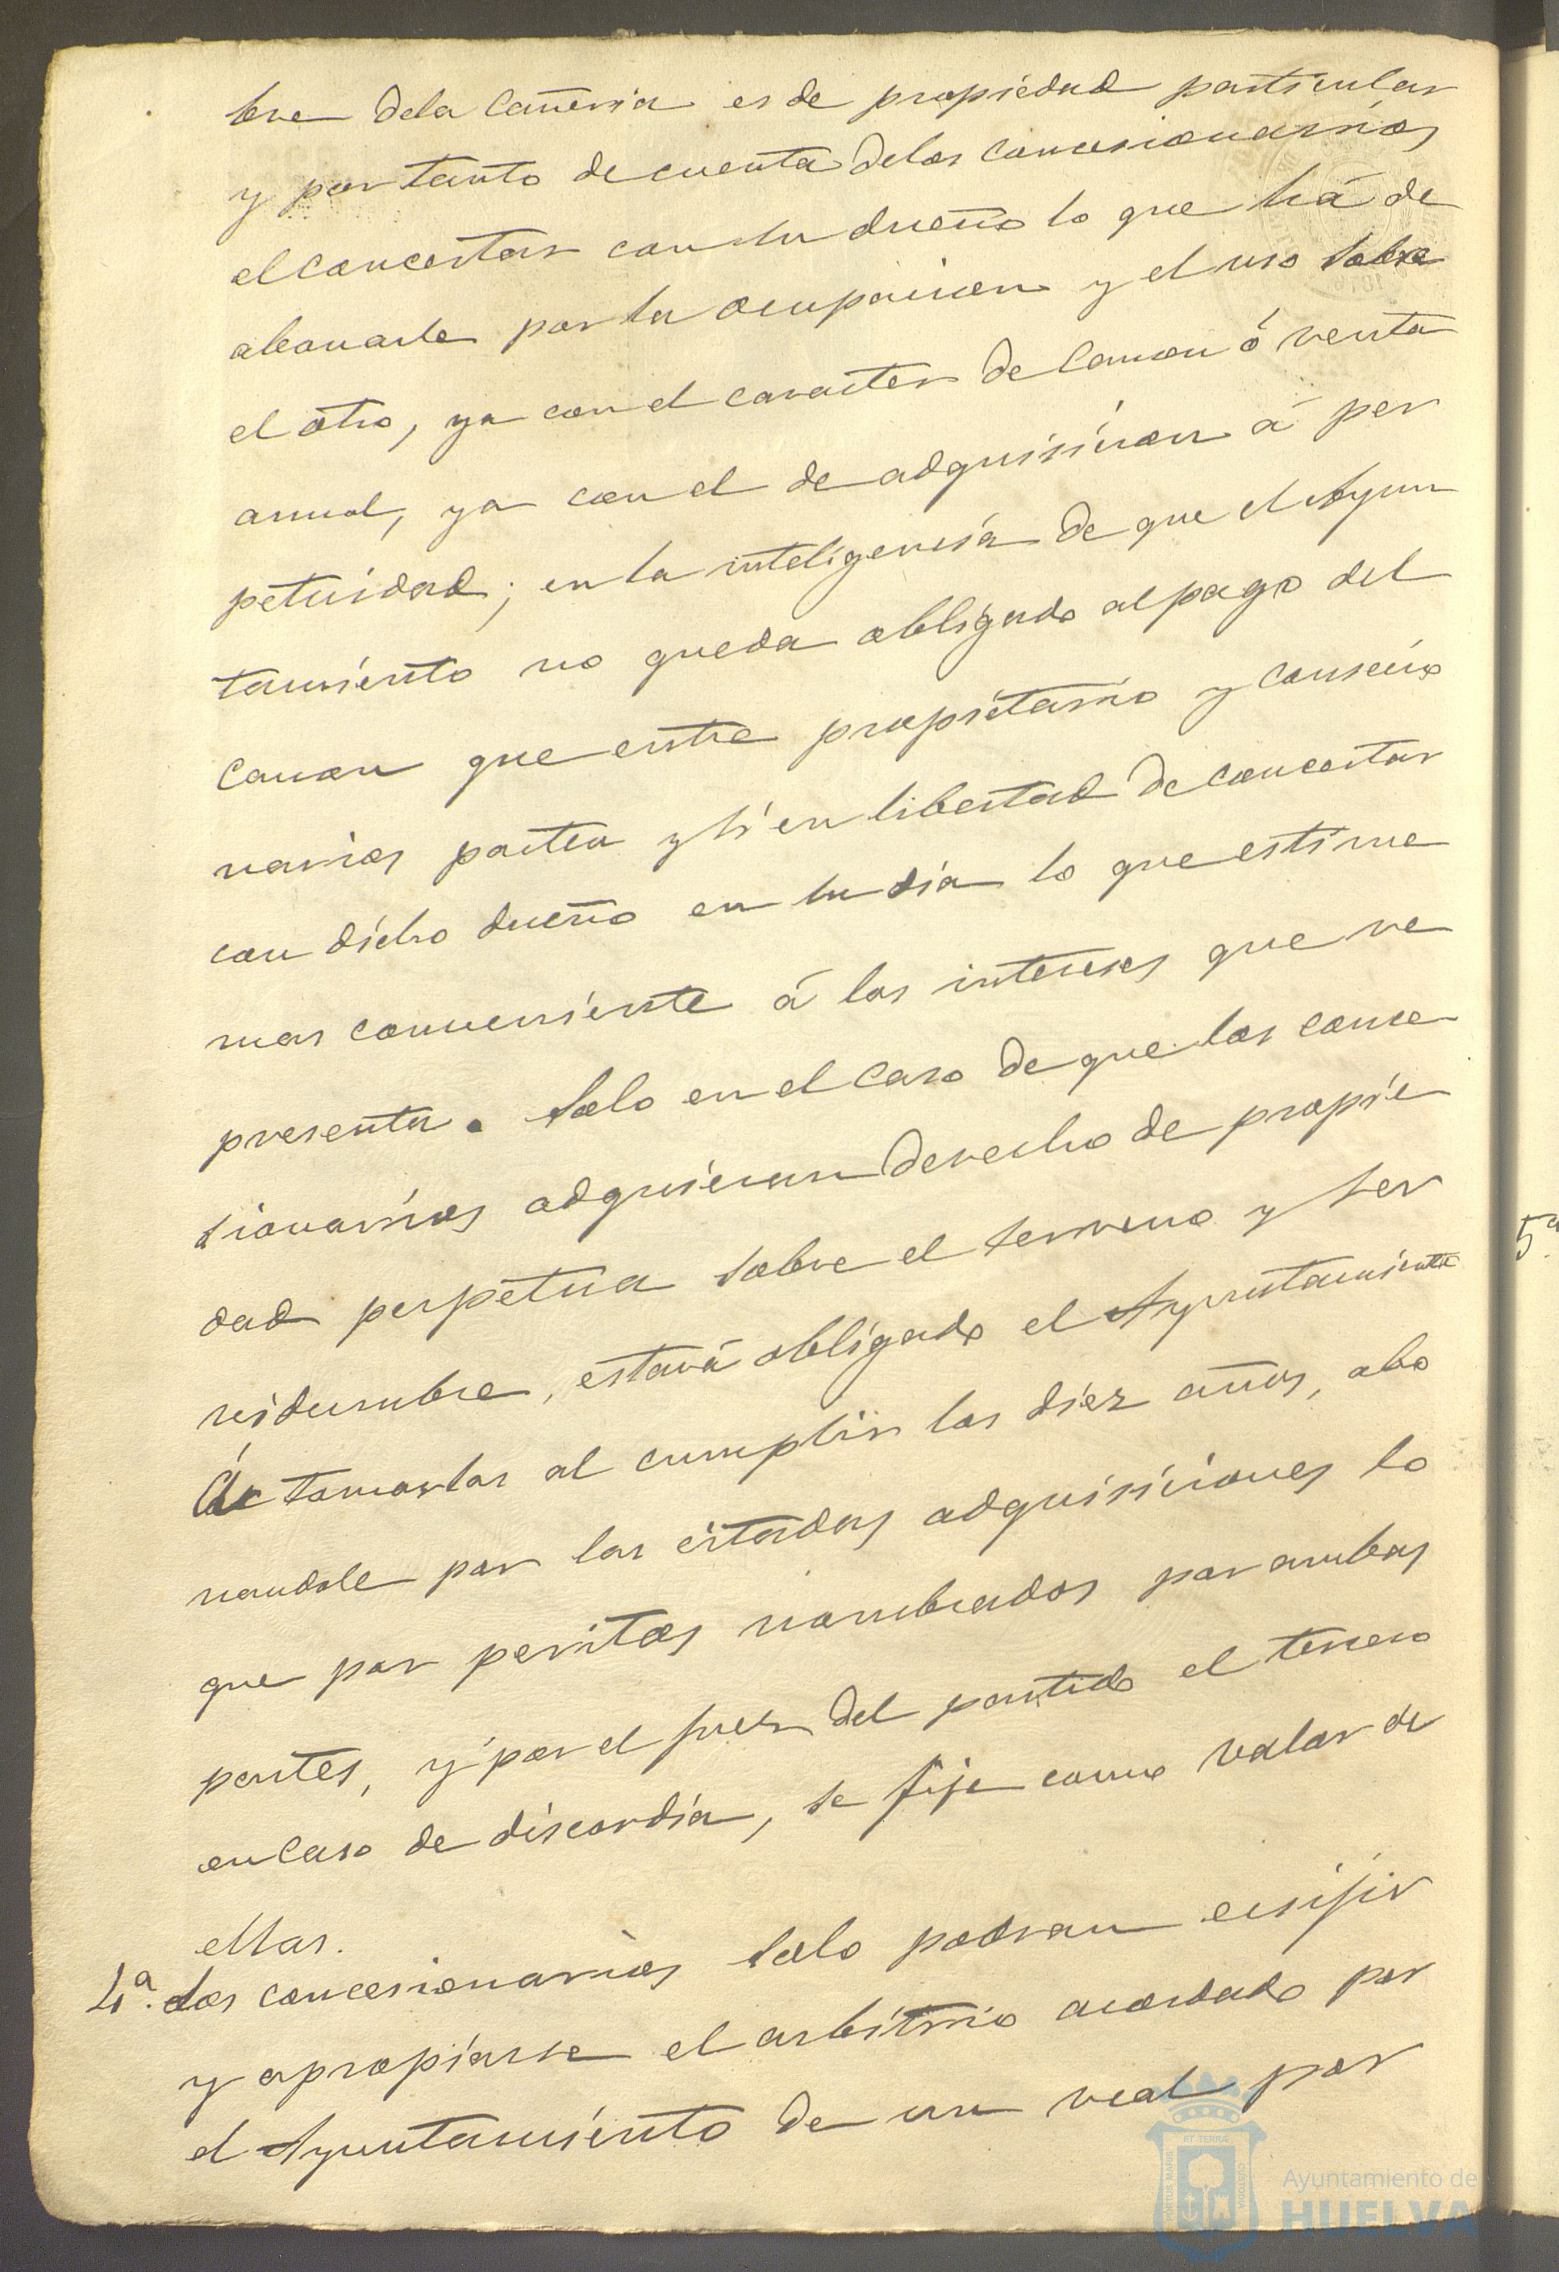 bre dela Cañeria es de propiedad particular
y por tanto de cuenta delos concesionarios
el concertar con su dueño lo que há de
abonarle por la ocupacion y el uso sobre
el otro, ya con el caracter de Canon ó renta
anual, ya con el de adquisicion á per
petuidad; en la inteligencia de que el Ayun
tamiento no queda obligado al pago del
Canon que entre propietario y consecio
narios pacten y si en libertad de concertar
con dicho dueño en su dia lo que estime
mas conveniente á los intereses que re
presenta. Solo en el Caso de que los conce
sionarios adquieran derecho de propie
dad perpetua sobre el terreno y ser
vidumbre, estará obligado el Ayuntamiento
á tomarlas al cumplir los diez años, abo
nandole por las citadas adquisiciones lo
que por peritos nombrados por ambas
partes, y por el Juez del partido el tercero
en Caso de discordia, se fije como valor de
ellas.
4ª. Los concesionarios solo podran ecsijir
y apropiarse el arbitrio acordado por
el Ayuntamiento de un real por
5ª
ET TERRA
Ayuntamiento de
HUELVA